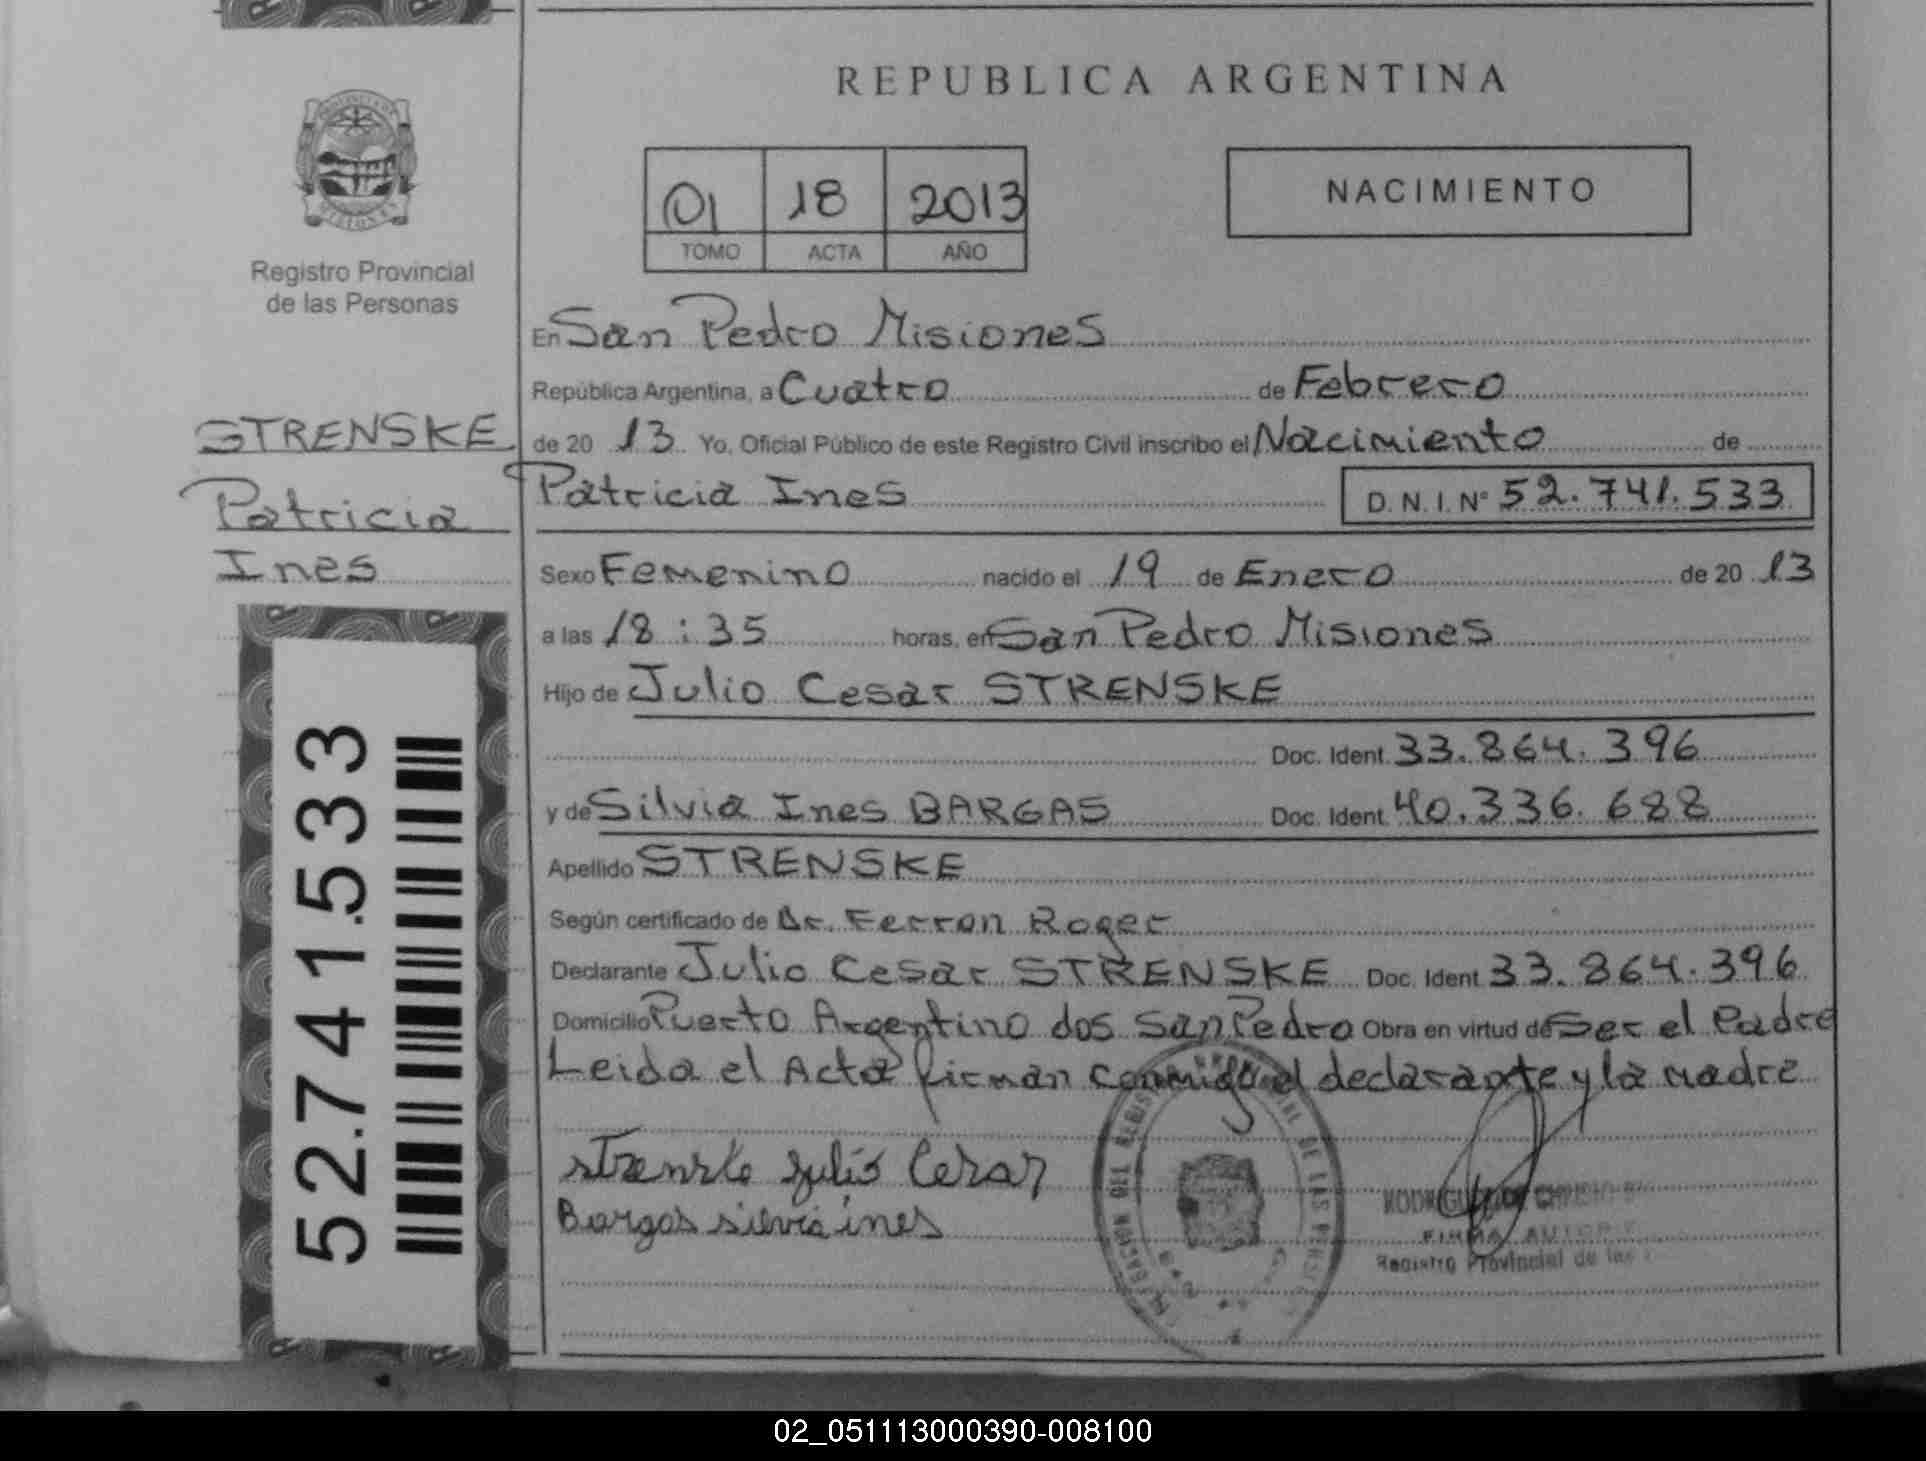 REPUBLICA ARGENTINA
Registro Provincial
de las Personas
01 18 2013
TOMO ACTA AÑO
NACIMIENTO
STRENSKE
Patricia
Ines
52.741.533
En San Pedro Misiones
República Argentina, a Cuatro de Febrero
de 20 13 Yo, Oficial Público de este Registro Civil inscribo el Nacimiento de
Patricia Ines D.N.I. Nº 52.741.533
Sexo Femenino nacido el 19 de Enero de 20 13
a las 18:35 horas, en San Pedro Misiones
Hijo de Julio Cesar STRENSKE
Doc. Ident. 33.864.396
y de Silvia Ines BARGAS Doc. Ident. 40.336.688
Apellido STRENSKE
Según certificado de Dr. Ferron Roger
Declarante Julio Cesar STRENSKE Doc. Ident. 33.864.396
Domicilio Puerto Argentino dos San Pedro Obra en virtud de Ser el Padre
Leida el Acta firman conmigo el declarante y la madre
Strenske Julio Cesar
Bargas silvia ines
FIRMA
Registro Provincial de las
02_051113000390-008100